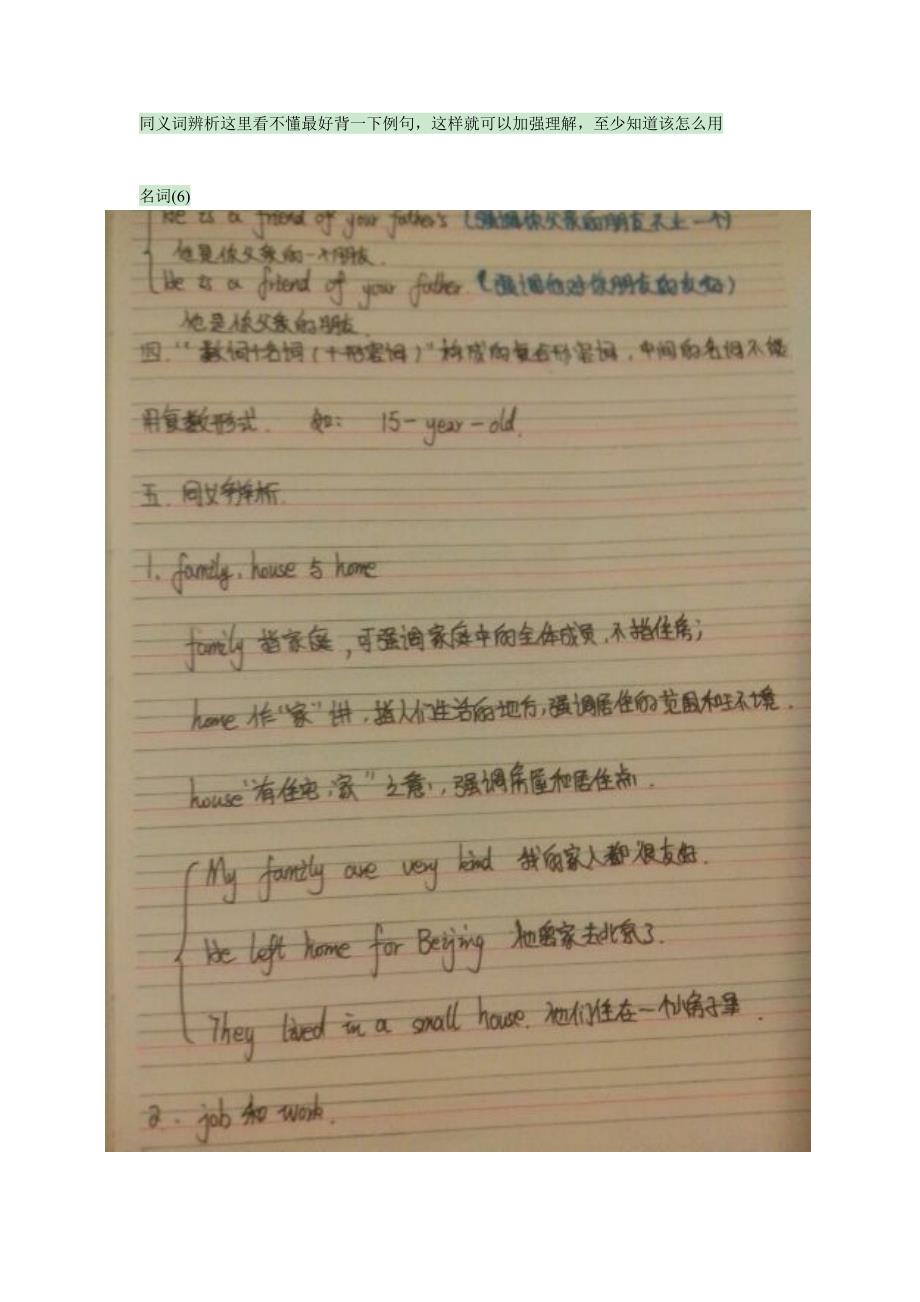 同义词辨析这里看不懂最好背一下例句，这样就可以加强理解，至少知道该怎么用
名词(6)
He is a friend of your father's (强调你父亲的朋友不止一个)
他是你父亲的一个朋友.
He is a friend of your father. (强调他对你朋友的友好)
他是你父亲的朋友.
四."数词+名词(+形容词)"构成的复合形容词,中间的名词不能
用复数形式. 如: 15-year-old.
五.同义词辨析.
1. family, house 与 home
family 指家庭,可强调家庭中的全体成员,不指住房;
home 作"家"讲,指人们生活的地方,强调居住的范围和环境.
house "有住宅,家"之意,强调房屋和居住点.
My family are very kind 我的家人都很友好.
He left home for Beijing 他离家去北京了.
They lived in a small house. 他们住在一个小房子里.
2. job 和 work.